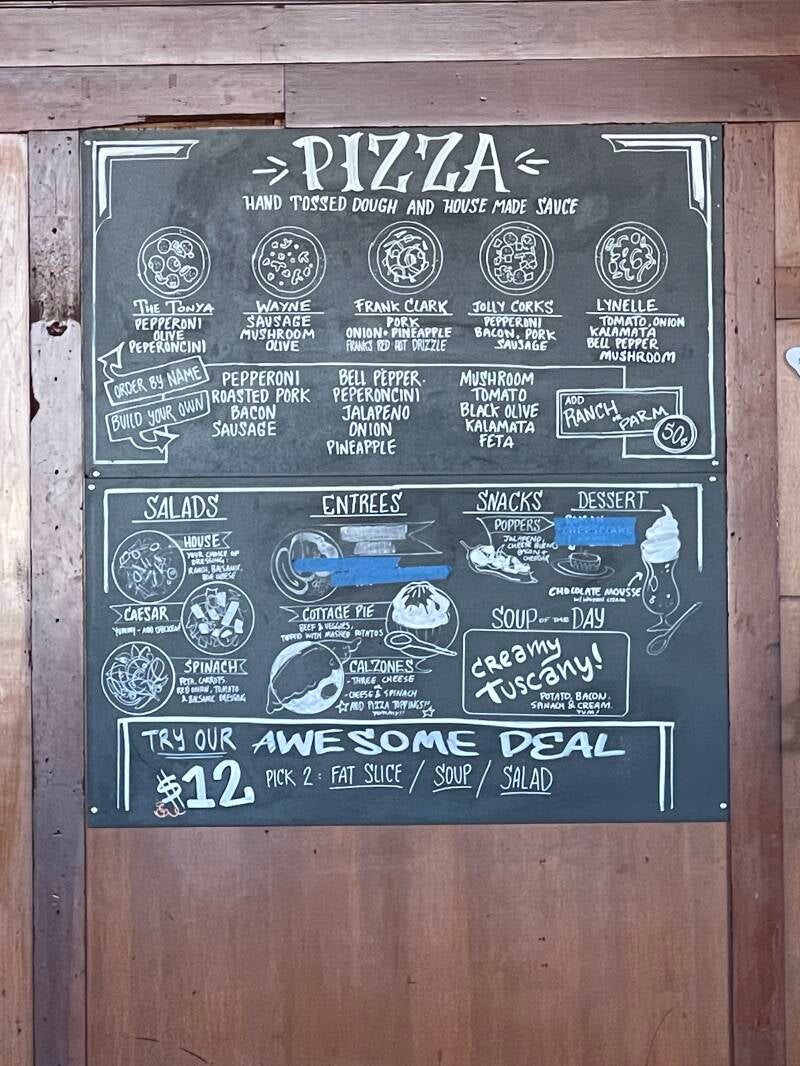 PIZZA
HAND TOSSED DOUGH AND HOUSE MADE SAUCE
THE TONYA
PEPPERONI
OLIVE
PEPERONCINI
WAYNE
SAUSAGE
MUSHROOM
OLIVE
FRANK CLARK
PORK
ONION + PINEAPPLE
FRANKS RED HOT DRIZZLE
JOLLY CORKS
PEPPERONI
BACON, PORK
SAUSAGE
LYNELLE
TOMATO, ONION
KALAMATA
BELL PEPPER
MUSHROOM
ORDER BY NAME
BUILD YOUR OWN
PEPPERONI
ROASTED PORK
BACON
SAUSAGE
BELL PEPPER
PEPERONCINI
JALAPENO
ONION
PINEAPPLE
MUSHROOM
TOMATO
BLACK OLIVE
KALAMATA
FETA
ADD
RANCH OR PARM
50¢
SALADS
HOUSE
YOUR CHOICE OF
DRESSING
RANCH, BALSAMIC,
BLUE CHEESE
CAESAR
YUMMY - ADD CHICKEN!
SPINACH
FETA, CARROTS,
RED ONION, TOMATO
& BALSAMIC DRESSING
ENTREES
COTTAGE PIE
BEEF & VEGGIES,
TOPPED WITH MASHED POTATOS
CALZONES
- THREE CHEESE
- CHEESE & SPINACH
ADD PIZZA TOPPINGS!!
YUMMY!!
SNACKS
POPPERS
JALAPENO,
CHEESE BLEND
BACON +
CHEDDAR
DESSERT
CHEESECAKE
CHOCOLATE MOUSSE
W/ WHIPPED CREAM
SOUP OF THE DAY
CREAMY
TUSCANY!
POTATO, BACON,
SPINACH & CREAM.
YUM!
TRY OUR AWESOME DEAL
$12 PICK 2: FAT SLICE / SOUP / SALAD